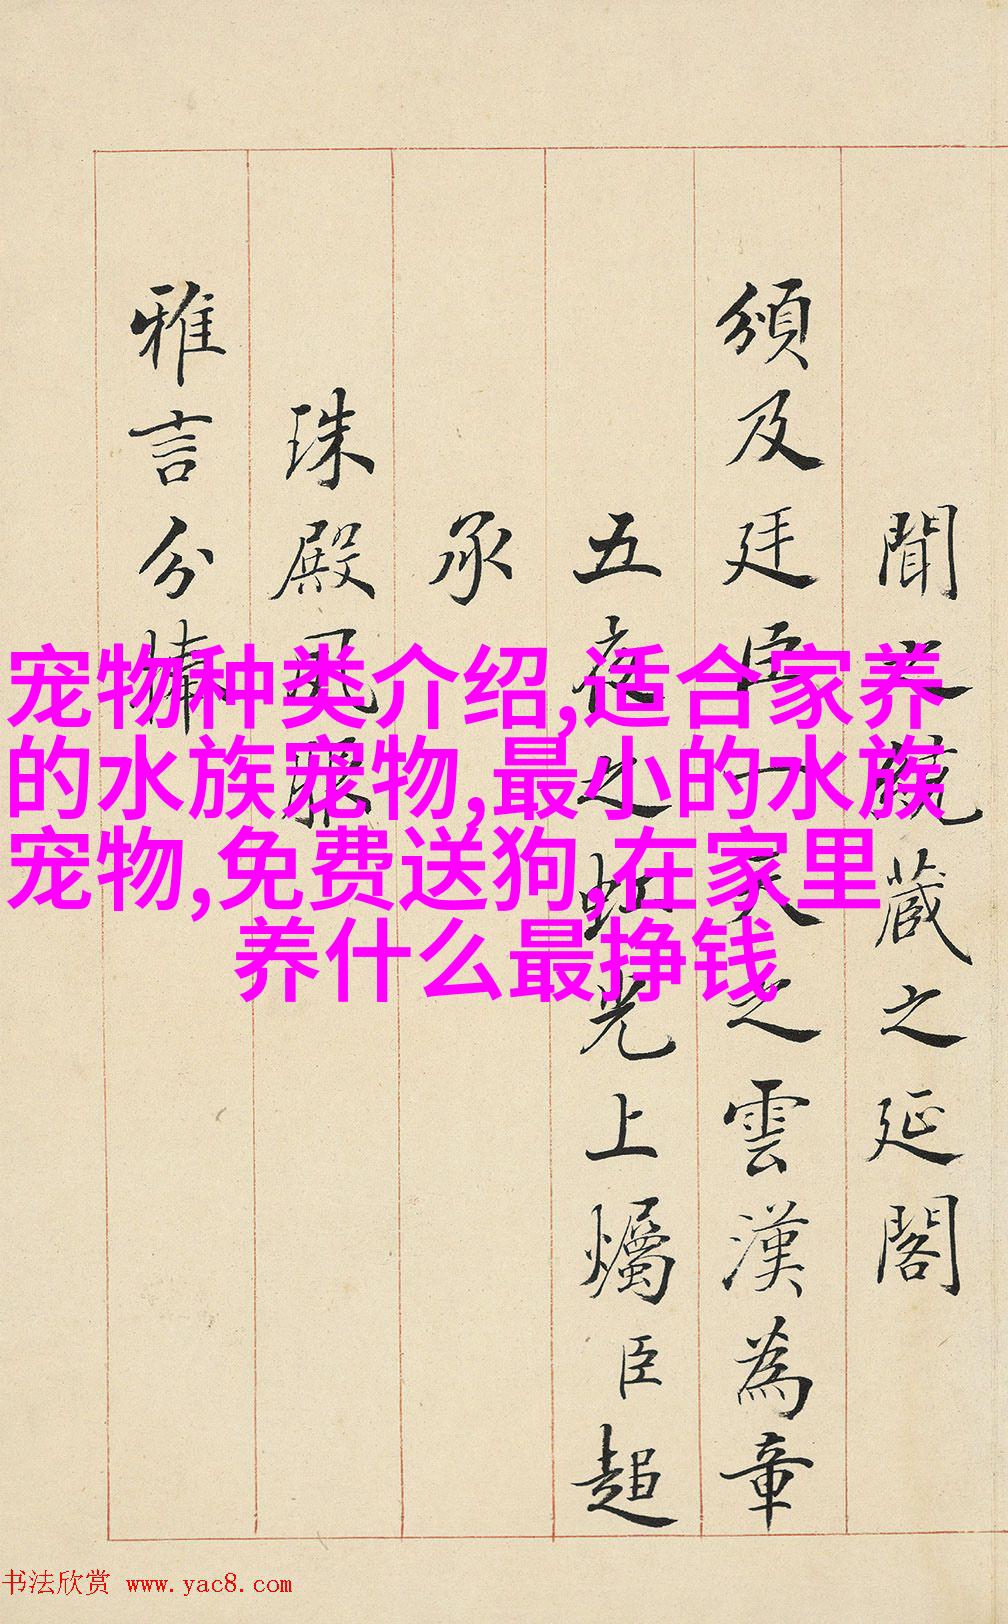 聞之藏之延閣
頒及廷臣一天之雲漢為章
五夜之虹光上爥臣超
承
珠殿
雅言分
宠物种类介绍,适合家养
的水族宠物,最小的水族
宠物,免费送狗,在家里
养什么最挣钱
书法欣赏 www.yac8.com